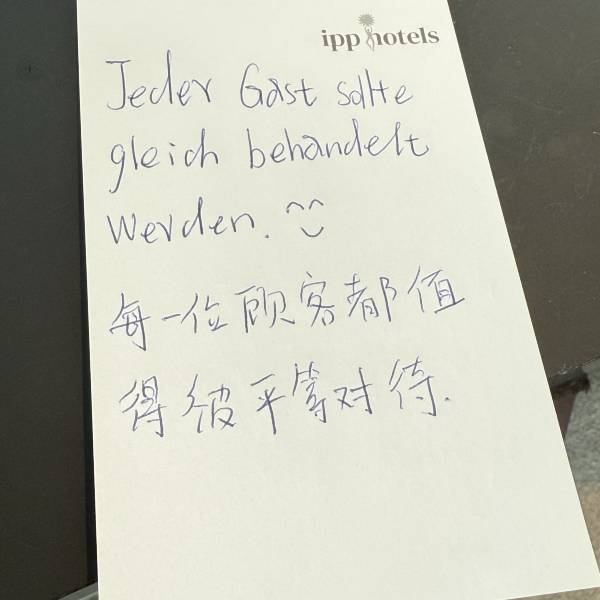 ipp hotels
Jeder Gast sollte
gleich behandelt
werden. ^^
每一位顾客都值
得被平等对待.